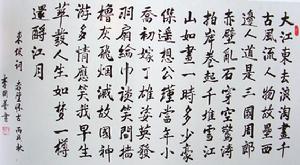 大江東去浪淘盡千
古風流人物故壘西
邊人道是三國周郎
赤壁亂石穿空驚濤
拍岸卷起千堆雪江
山如畫一時多少豪
傑遥想公瑾當年小
喬初嫁了雄姿英發
羽扇綸巾談笑間檣
櫓灰飛煙滅故國神
游多情應笑我早生
華髮人生如夢一樽
還酹江月
東坡詞 赤壁懷古